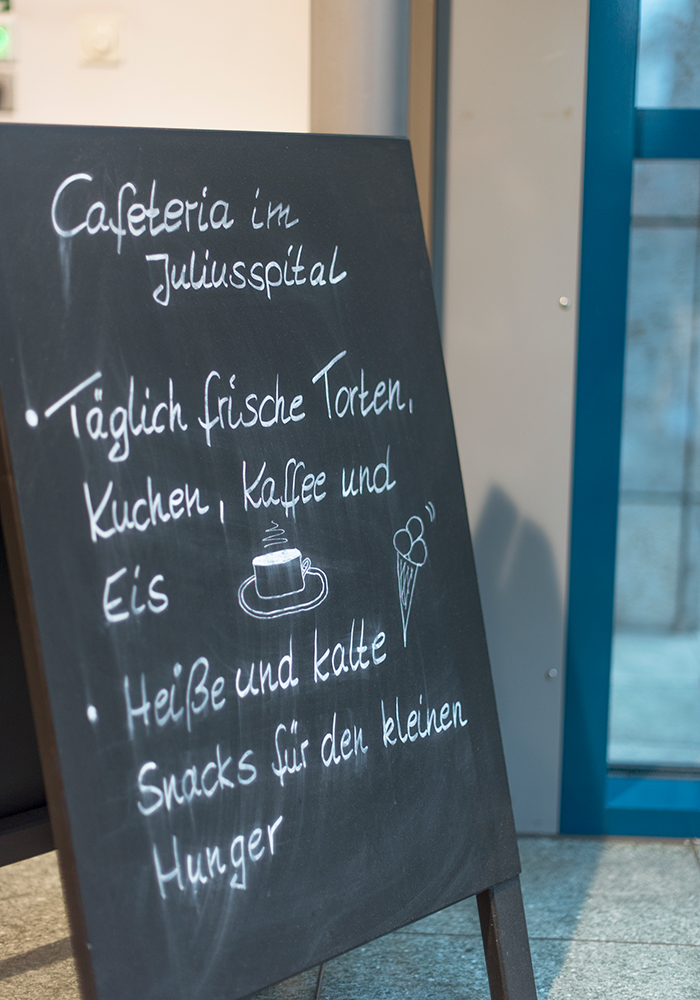 Cafeteria im
Juliusspital
• Täglich frische Torten,
Kuchen, Kaffee und
Eis
• Heiße und kalte
Snacks für den kleinen
Hunger